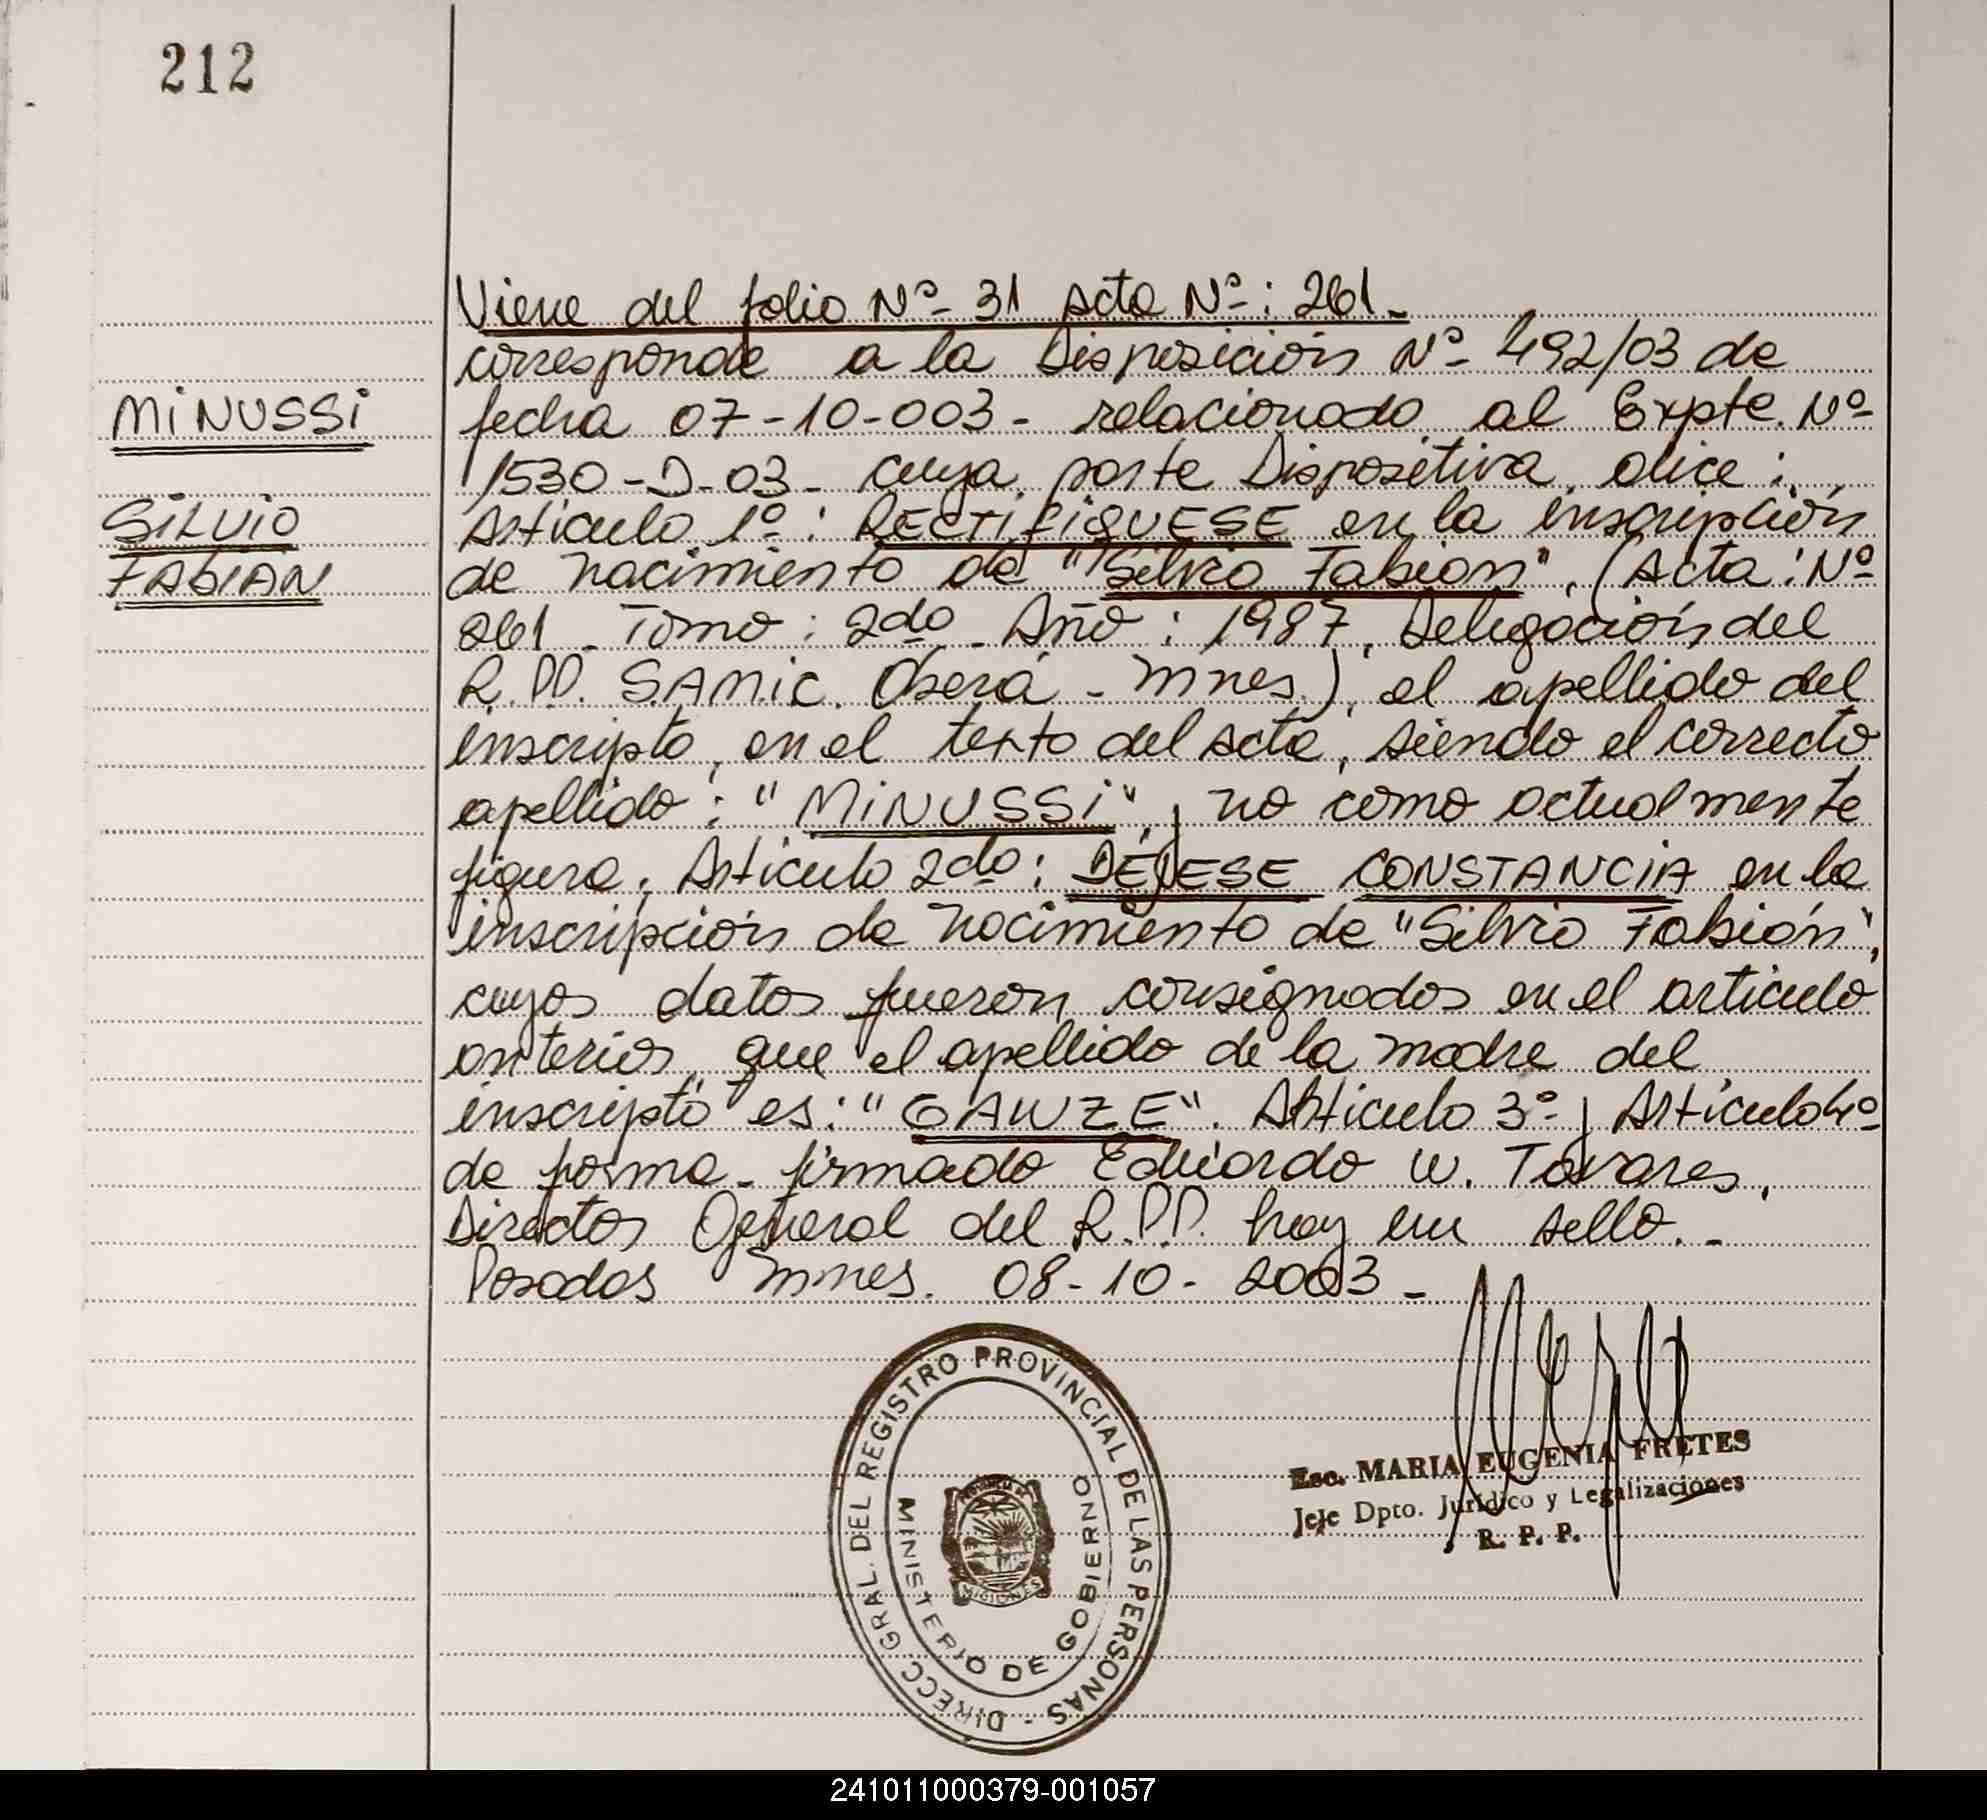 212
Viene del folio Nº 31 acta Nº: 261-
corresponde a la Disposición Nº 492/03 de
MINUSSI
fecha 07-10-003- relacionado al Expte. Nº
1530-D-03- cuya parte Dispositiva, dice:
SILVIO
Articulo 1º: RECTIFIQUESE en la inscripción
FABIAN
de nacimiento de "Silvio Fabián", (Acta: Nº
261 - Tomo: 2do - Año: 1987, Delegación del
R.PP. SAMIC. Oberá - Mnes.), el apellido del
inscripto, en el texto del acta, siendo el correcto
apellido: "MINUSSI", y no como actualmente
figura. Articulo 2do: DÉJESE CONSTANCIA en la
inscripción de nacimiento de "Silvio Fabián",
cuyos datos fueron consignados en el articulo
anterior, que el apellido de la madre del
inscripto es: "GANZE". Articulo 3º y Articulo 4º
de forma - firmado Eduardo W. Tavares,
Director General del R.PP. hay un sello.-
Posadas Mnes. 08-10-2003-
DIRECC GRAL. DEL REGISTRO PROVINCIAL DE LAS PERSONAS -
MINISTERIO DE GOBIERNO
PROVINCIA DE
MISIONES
Esc. MARIA EUGENIA FRETES
Jefe Dpto. Jurídico y Legalizaciones
R. P. P.
241011000379-001057